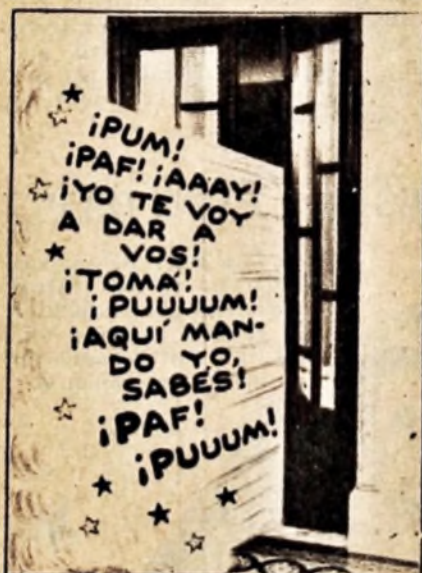 ¡PUM!
¡PAF! ¡AAAY!
¡YO TE VOY
A DAR A
VOS!
¡TOMÁ!
¡PUUUUM!
¡AQUÍ MAN-
DO YO,
SABÉS!
¡PAF!
¡PUUUM!